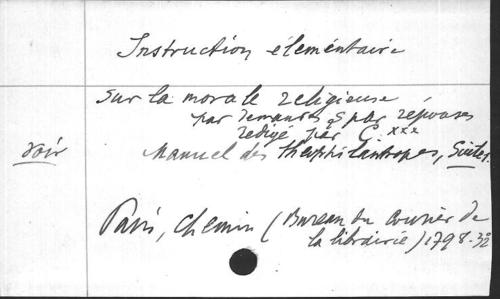 Instruction élémentaire
sur la morale religieuse
par demandes & par réponses
rédigé par C. xxx
voir Manuel des théophilantropes, Suite.
Paris, Chemin (Bureau du Courier de
la librairie) 1798 - 32